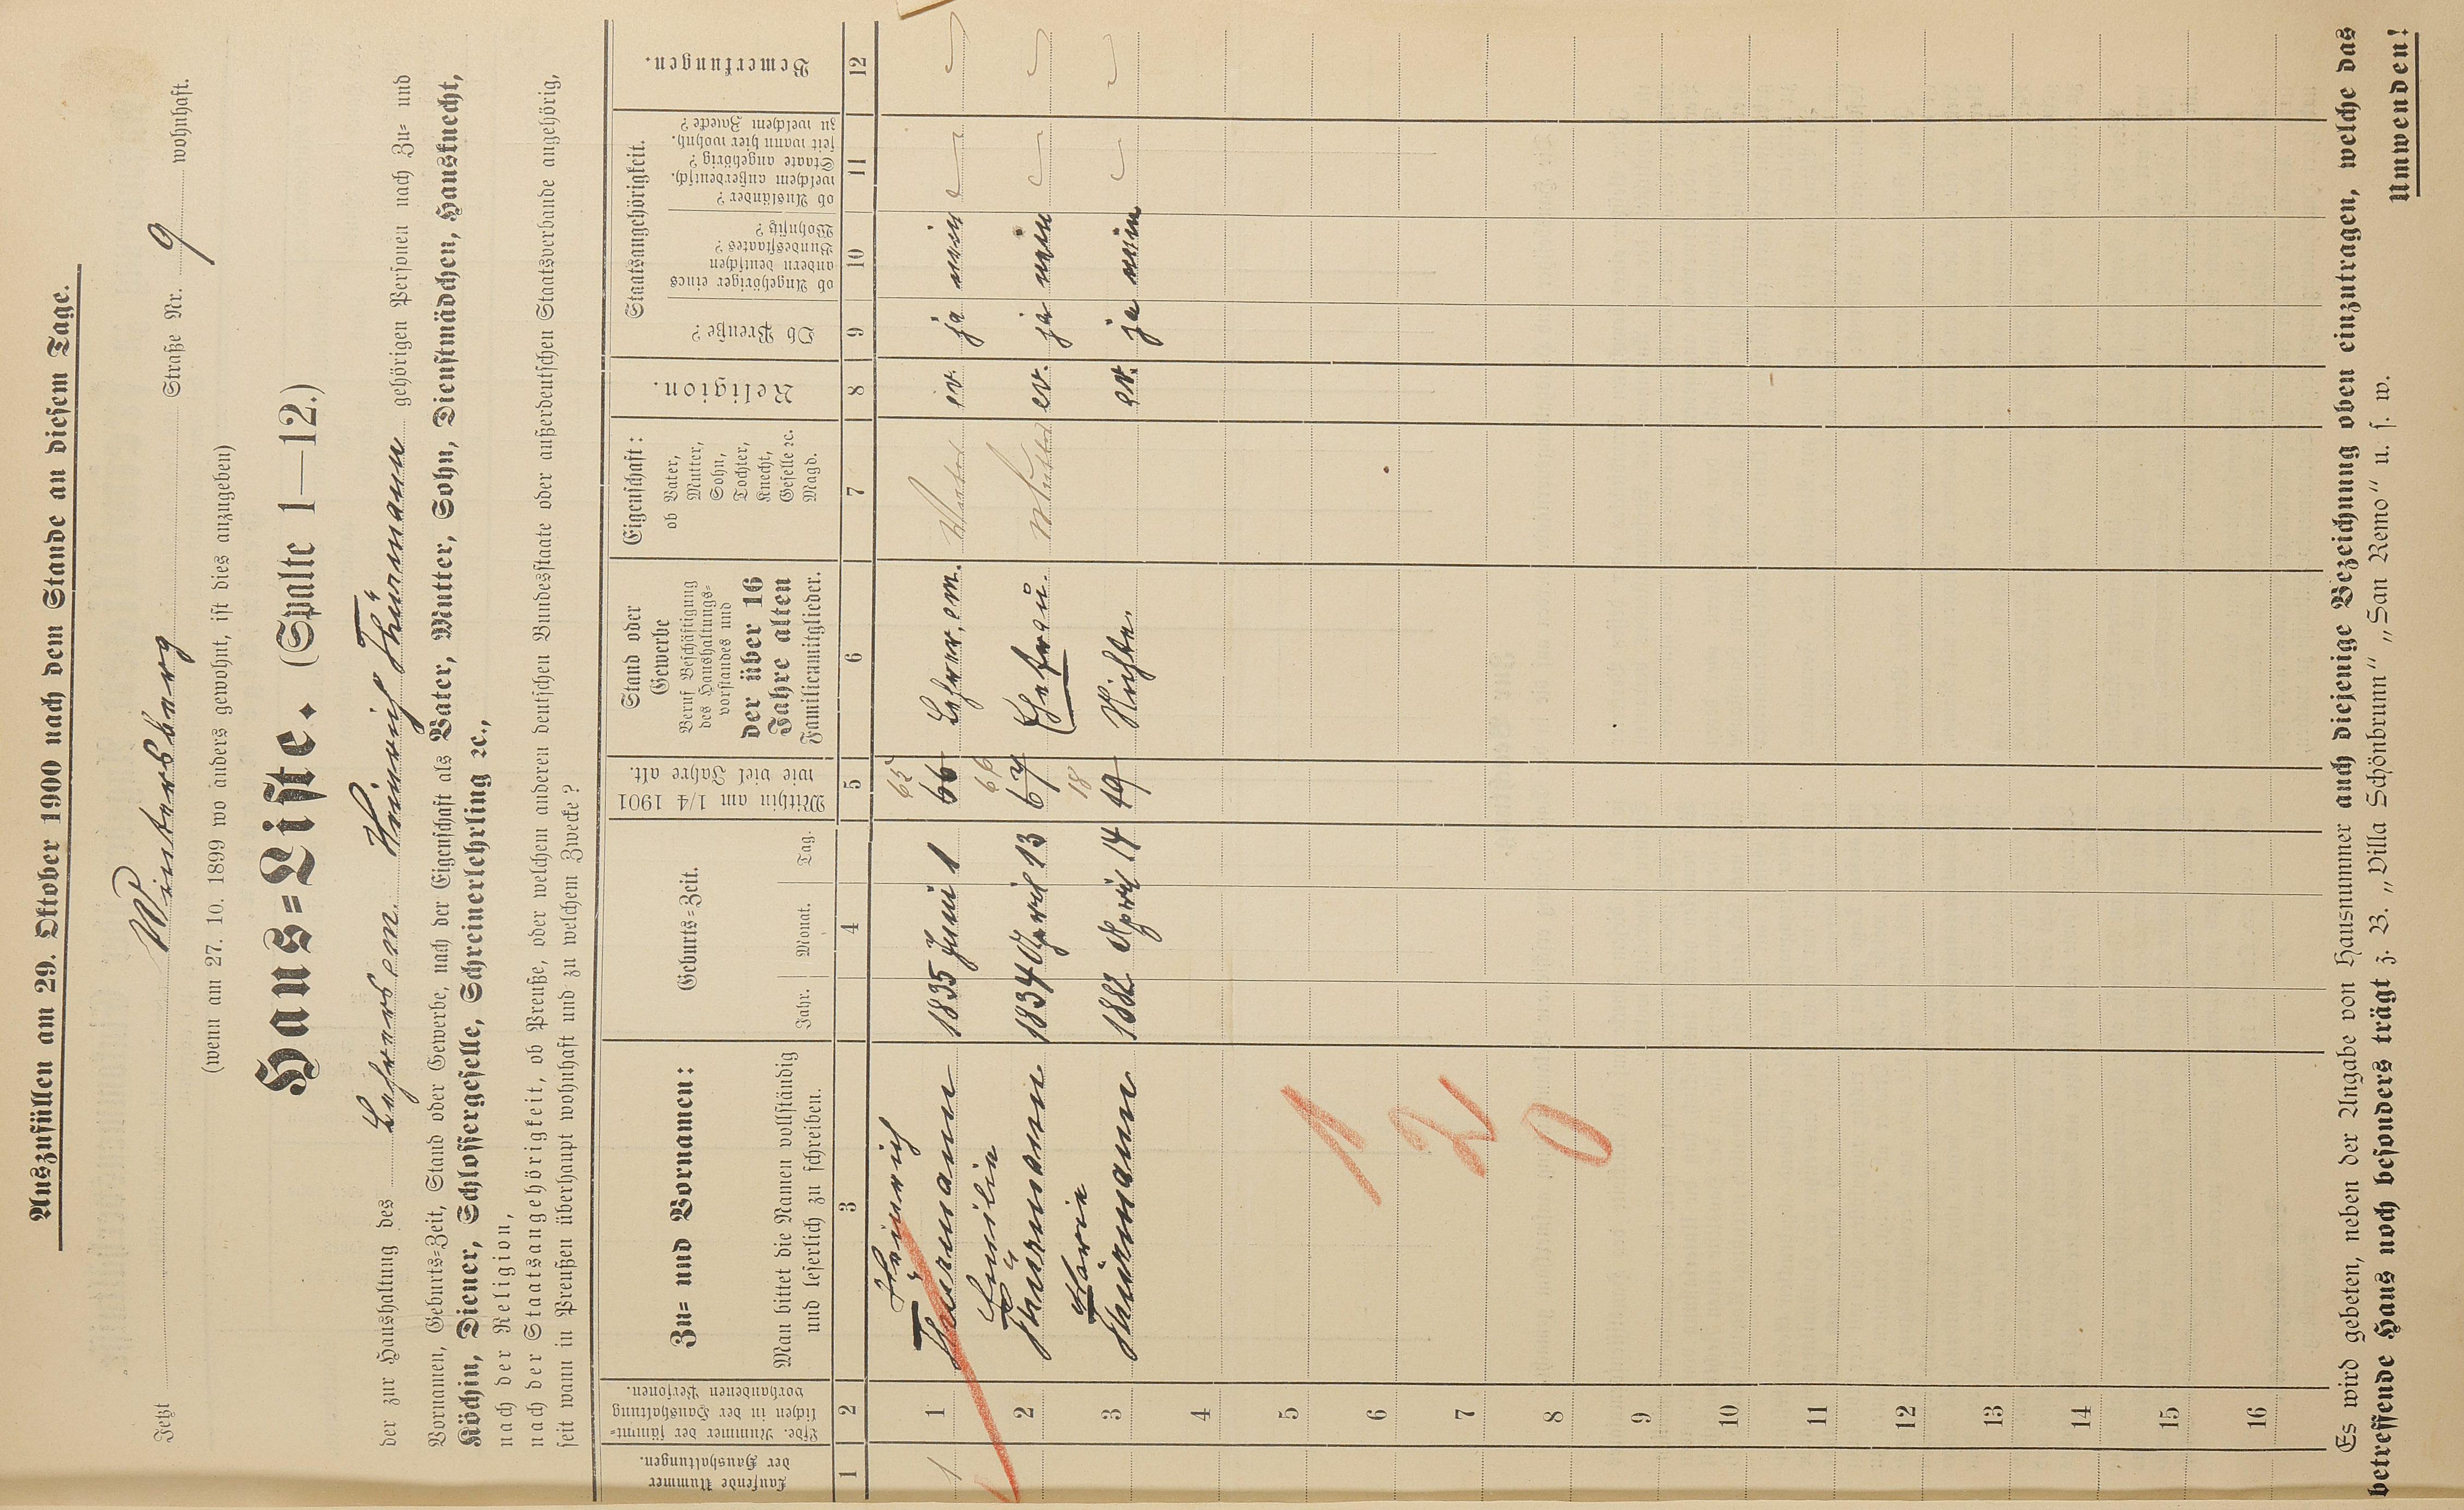 Auszufüllen am 29. Oktober 1900 nach dem Stande an diesem Tage.
Jetzt Wintersberg Straße Nr. 9 wohnhaft.
(wenn am 27. 10. 1899 wo anders gewohnt, ist dies anzugeben)
Haus=Liste. (Spalte 1—12.)
der zur Haushaltung des Lehrers em. Heinrich Thürmann gehörigen Personen nach Zu= und
Vornamen, Geburts=Zeit, Stand oder Gewerbe, nach der Eigenschaft als Vater, Mutter, Sohn, Dienstmädchen, Hausknecht,
Köchin, Diener, Schlossergeselle, Schreinerlehrling ꝛc.,
nach der Religion,
nach der Staatsangehörigkeit, ob Preuße, oder welchem anderen deutschen Bundesstaate oder außerdeutschen Staatsverbande angehörig,
seit wann in Preußen überhaupt wohnhaft und zu welchem Zwecke?
Laufende Nummer der Haushaltungen.
Lfde. Nummer der sämmt=lichen in der Haushaltung vorhandenen Personen.
Zu= und Vornamen:
Man bittet die Namen vollständig
und leserlich zu schreiben.
Geburts=Zeit.
Jahr. Monat. Tag.
Mithin am 1/4 1901
wie viel Jahre alt.
Stand oder
Gewerbe
Beruf Beschäftigung
des Haushaltungs=
vorstandes und
der über 16
Jahre alten
Familienmitglieder.
Eigenschaft:
ob Vater,
Mutter,
Sohn,
Tochter,
Knecht,
Geselle ꝛc.
Magd.
Religion.
Staatsangehörigkeit.
Ob Preuße?
ob Angehöriger eines
andern deutschen
Bundesstaates?
Wohnsitz?
ob Ausländer?
welchem außerdeutsch.
Staate angehörig?
seit wann hier wohnh.
zu welchem Zwecke?
Bemerkungen.
1 2 3 4 5 6 7 8 9 10 11 12
Heinrich 65
1 1 Thürmann 1835 Juni 1 66 Lehrer, em. Vater ev. ja nein
Emilie 66
2 Thürmann 1834 April 13 67 Ehefrau. Mutter ev. ja nein
Marie 18
3 Thürmann 1882 April 14 19 Nichte. ev. ja nein
4
5
1
6
2
7
8
0
9
10
11
12
13
14
15
16
Es wird gebeten, neben der Angabe von Hausnummer auch diejenige Bezeichnung oben einzutragen, welche das
betreffende Haus noch besonders trägt z. B. „Villa Schönbrunn" „San Remo" u. s. w.
Umwenden!